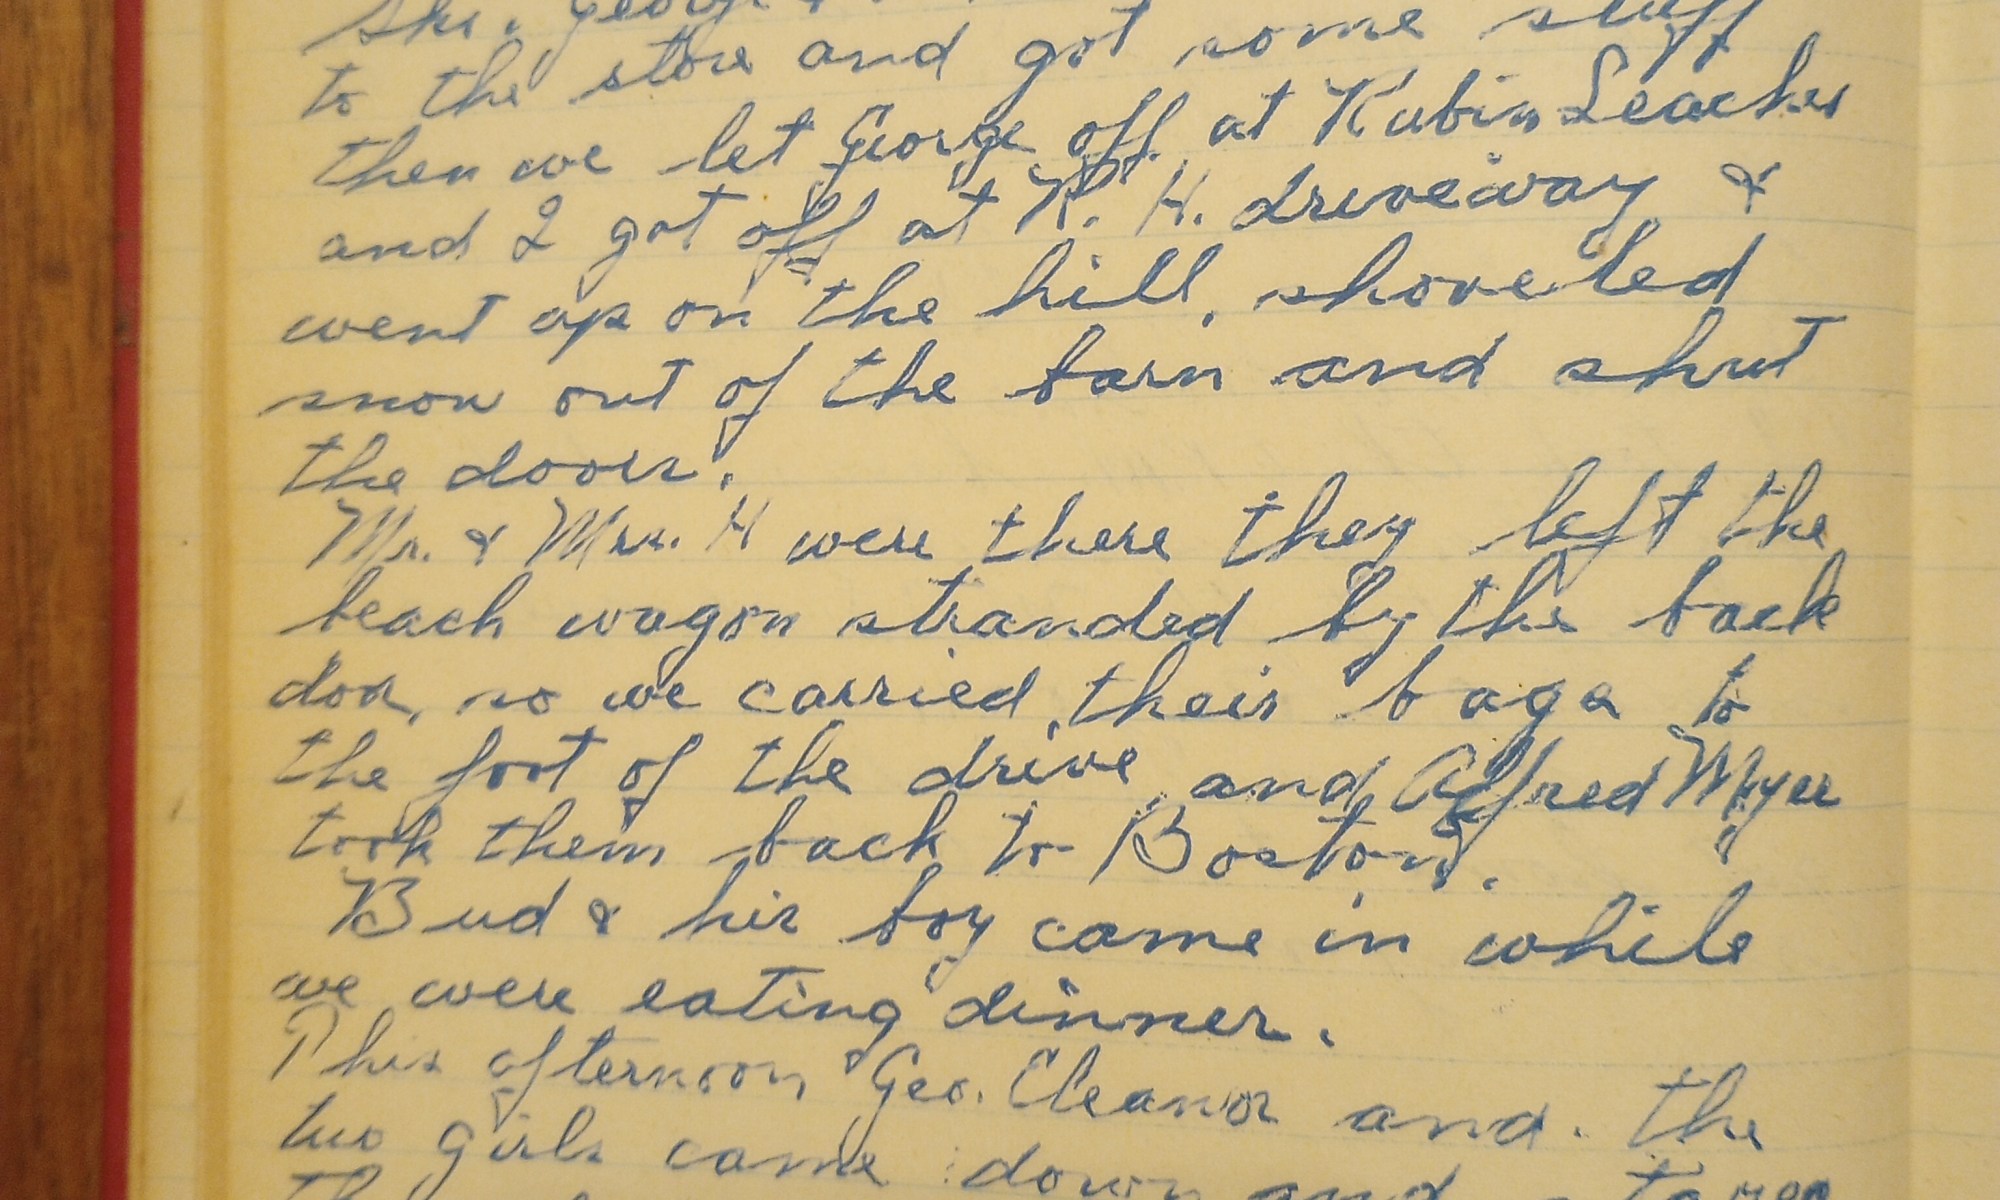 to the store and got some stuff
then we let George off at Rubin Leaches
and I got off at R. H. driveway &
went up on the hill, shoveled
snow out of the barn and shut
the doors.
Mr. & Mrs. H were there they left the
beach wagon stranded by the back
door, so we carried their bags to
the foot of the drive and Alfred Myer
took them back to Boston.
Bud & his boy came in while
we were eating dinner.
This afternoon Geo. Eleanor and. the
two girls came down and